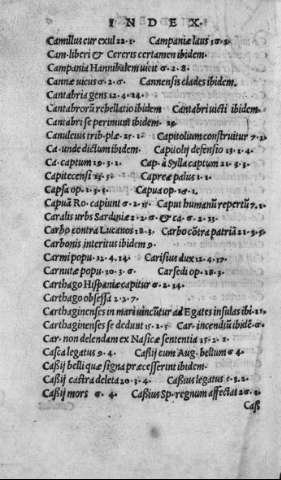 INDEX.
Camillus cur exul 22.1. Campaniæ laus 16.3.
Cam-liberi & Cereris certamen ibidem.
Campania Hannibalem uicit 6.2.8.
Cannæ uicus 6.2.6. Cannensis clades ibidem.
Cantabria gens 12.4.24.
Cantabrorũ rebellatio ibidem Cantabri uicti ibidem.
Cantabri se perimunt ibidem. 29.
Canuleius trib-plæ.25.1. Capitolium construitur 7.2.
Ca-unde dictum ibidem Capitolij defensio 13.1.4.
Ca-captum 19.3.2. Cap-à Sylla captum 21.3.3.
Capitecensi 15.5. Capreæ palus 1.1.
Capsa op.1.3.5. Capua op.16.1.
Capuã Ro.capiunt 6.2.17. Caput humanũ repertũ 7.1.
Caralis urbs Sardiniæ 2.2.6. & ca.6.2.33.
Carbo contra Lucanos 18.3. Carbo cõtra patriã 21.3.5.
Carbonis interitus ibidem 9.
Carmi popu.12.4.14. Carisius dux 12.4.17.
Carnutæ popu.10.3.6. Carsedi op.18.3.
Carthago Hispaniæ capitur 6.2.24.
Carthago obsessa 2.2.7.
Carthaginenses in mari uincũtur ad Egates insulas ibi.21.
Carthaginenses se dedunt 15.2.5. Car.incendiũ ibidẽ.6.
Car-non delendam ex Nasicæ sententia 15.2.8.
Casca legatus 9.4. Cassij cum Aug.bellum 6.4.
Cassij belli quæ signa præcesserint ibidem.
Cassij castra deleta 20.3.4. Cassius legatus 1.3.2.
Cassij mors 6.4. Cassius Sp-regnum affectat 26.2.
Cass